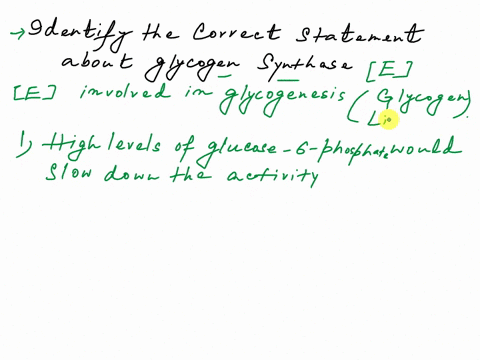 → Identify the Correct Statement
about glycogen Synthase [E]
[E] involved in glycogenesis (Glycogen)
(Li
1, High levels of glucose-6-phosphate would
Slow down the activity